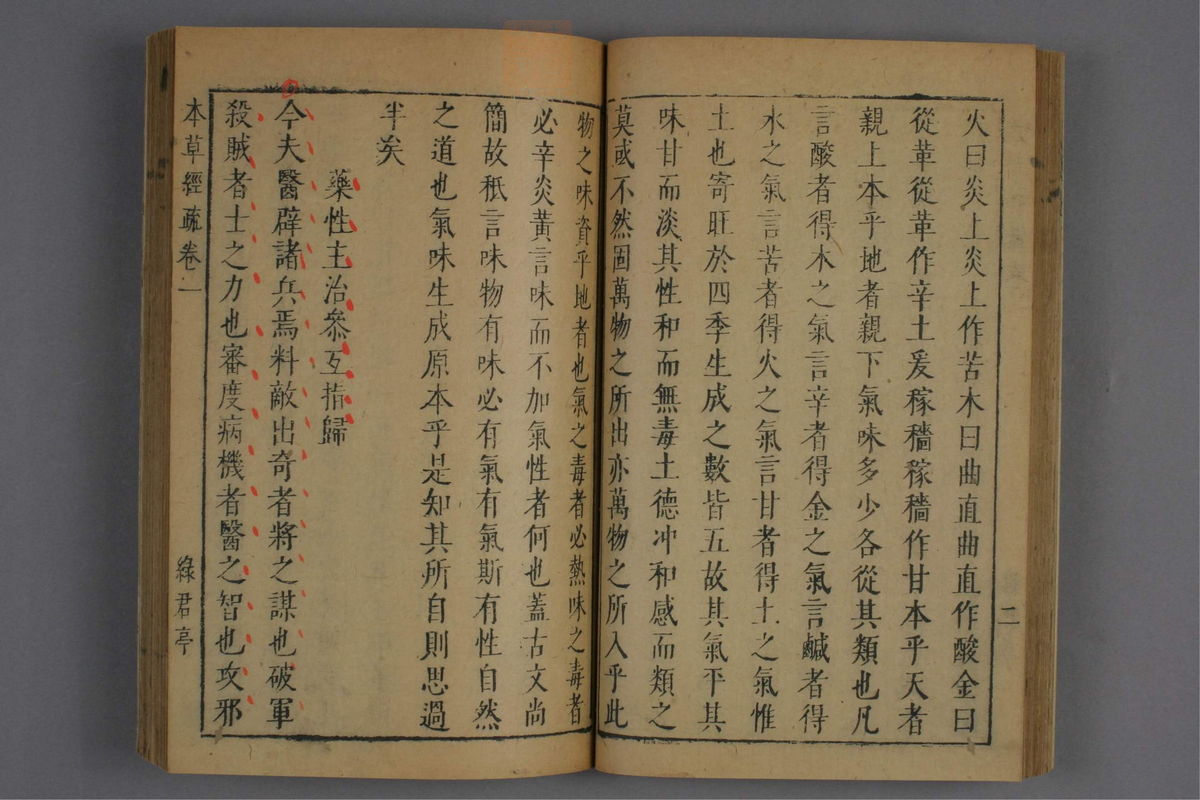 火曰炎上炎上作苦木曰曲直曲直作酸金曰
從革從革作辛土爰稼穡稼穡作甘本乎天者
親上本乎地者親下氣味多少各從其類也凡
言酸者得木之氣言辛者得金之氣言鹹者得
水之氣言苦者得火之氣言甘者得土之氣惟
土也寄旺於四季生成之數皆五故其氣平其
味甘而淡其性和而無毒土德冲和感而類之
莫或不然固萬物之所出亦萬物之所入乎此
二
物之味資乎地者也氣之毒者必熱味之毒者
必辛炎黃言味而不加氣性者何也蓋古文尚
簡故秖言味物有味必有氣有氣斯有性自然
之道也氣味生成原本乎是知其所自則思過
半矣
藥性主治叅互指歸
今夫醫辟諸兵焉料敵出奇者將之謀也破軍
殺賊者士之力也審度病機者醫之智也攻邪
本草經疏卷一
綠君亭